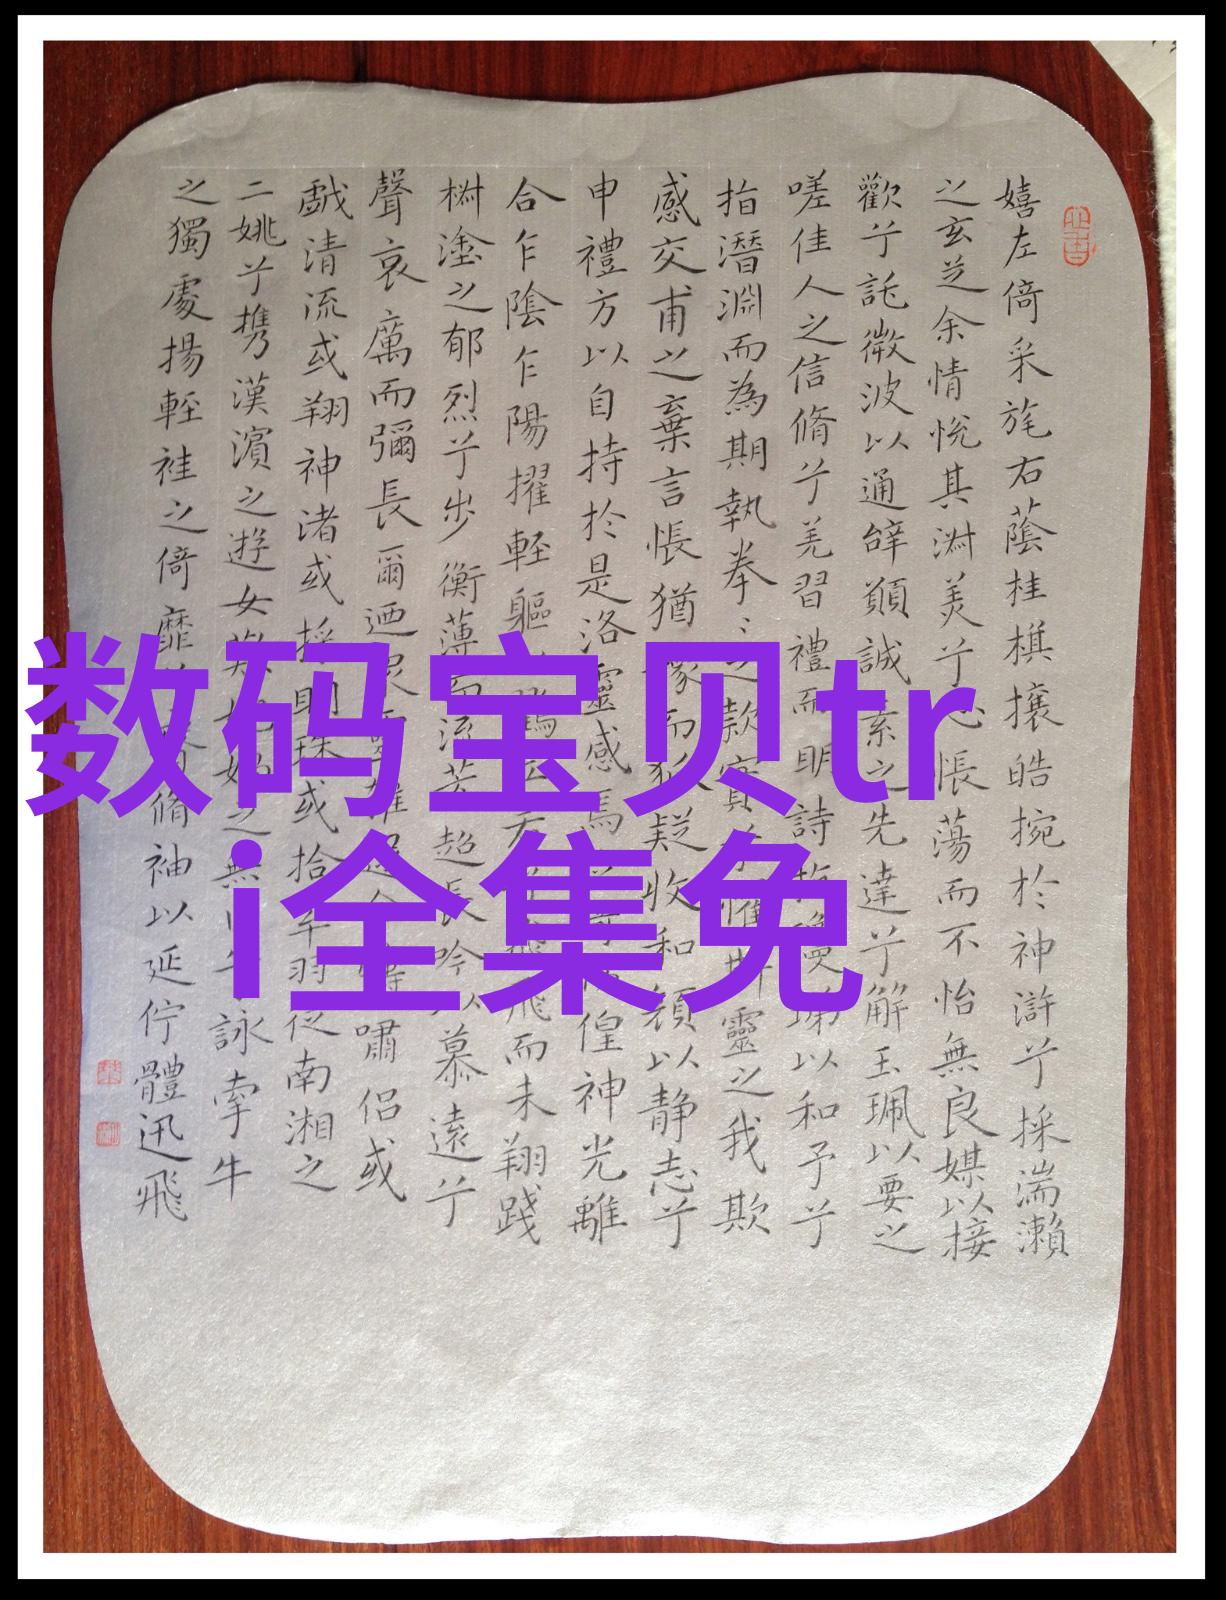 嬉左倚采旄右蔭桂棋攘皓捥於神滸兮採湍瀨
之玄芝余情悅其淑美兮心悵蕩而不怡無良媒以接
歡兮託微波以通辭願誠素之先達兮解玉珮以要之
嗟佳人之信脩兮羌習禮而明詩抗瓊珶以和予兮
指潛淵而為期執拳〻之款實兮懼斯靈之我欺
感交甫之棄言悵猶豫而狐疑收和顏以靜志兮
申禮方以自持於是洛靈感焉徨神光離
合乍陰乍陽擢輕軀鶴立若飛而未翔踐
樹塗之郁烈兮步衡薄而流芳超長吟以慕遠兮
聲哀厲而彌長爾迺眾靈雜遝命儔嘯侶或
戲清流或翔神渚或採明珠或拾翠羽從南湘之
二姚兮攜漢濱之遊女歎媧之無匹兮詠牽牛
之獨處揚輕袿之倚靡脩袖以延佇體迅飛
数码宝贝tr
i全集免